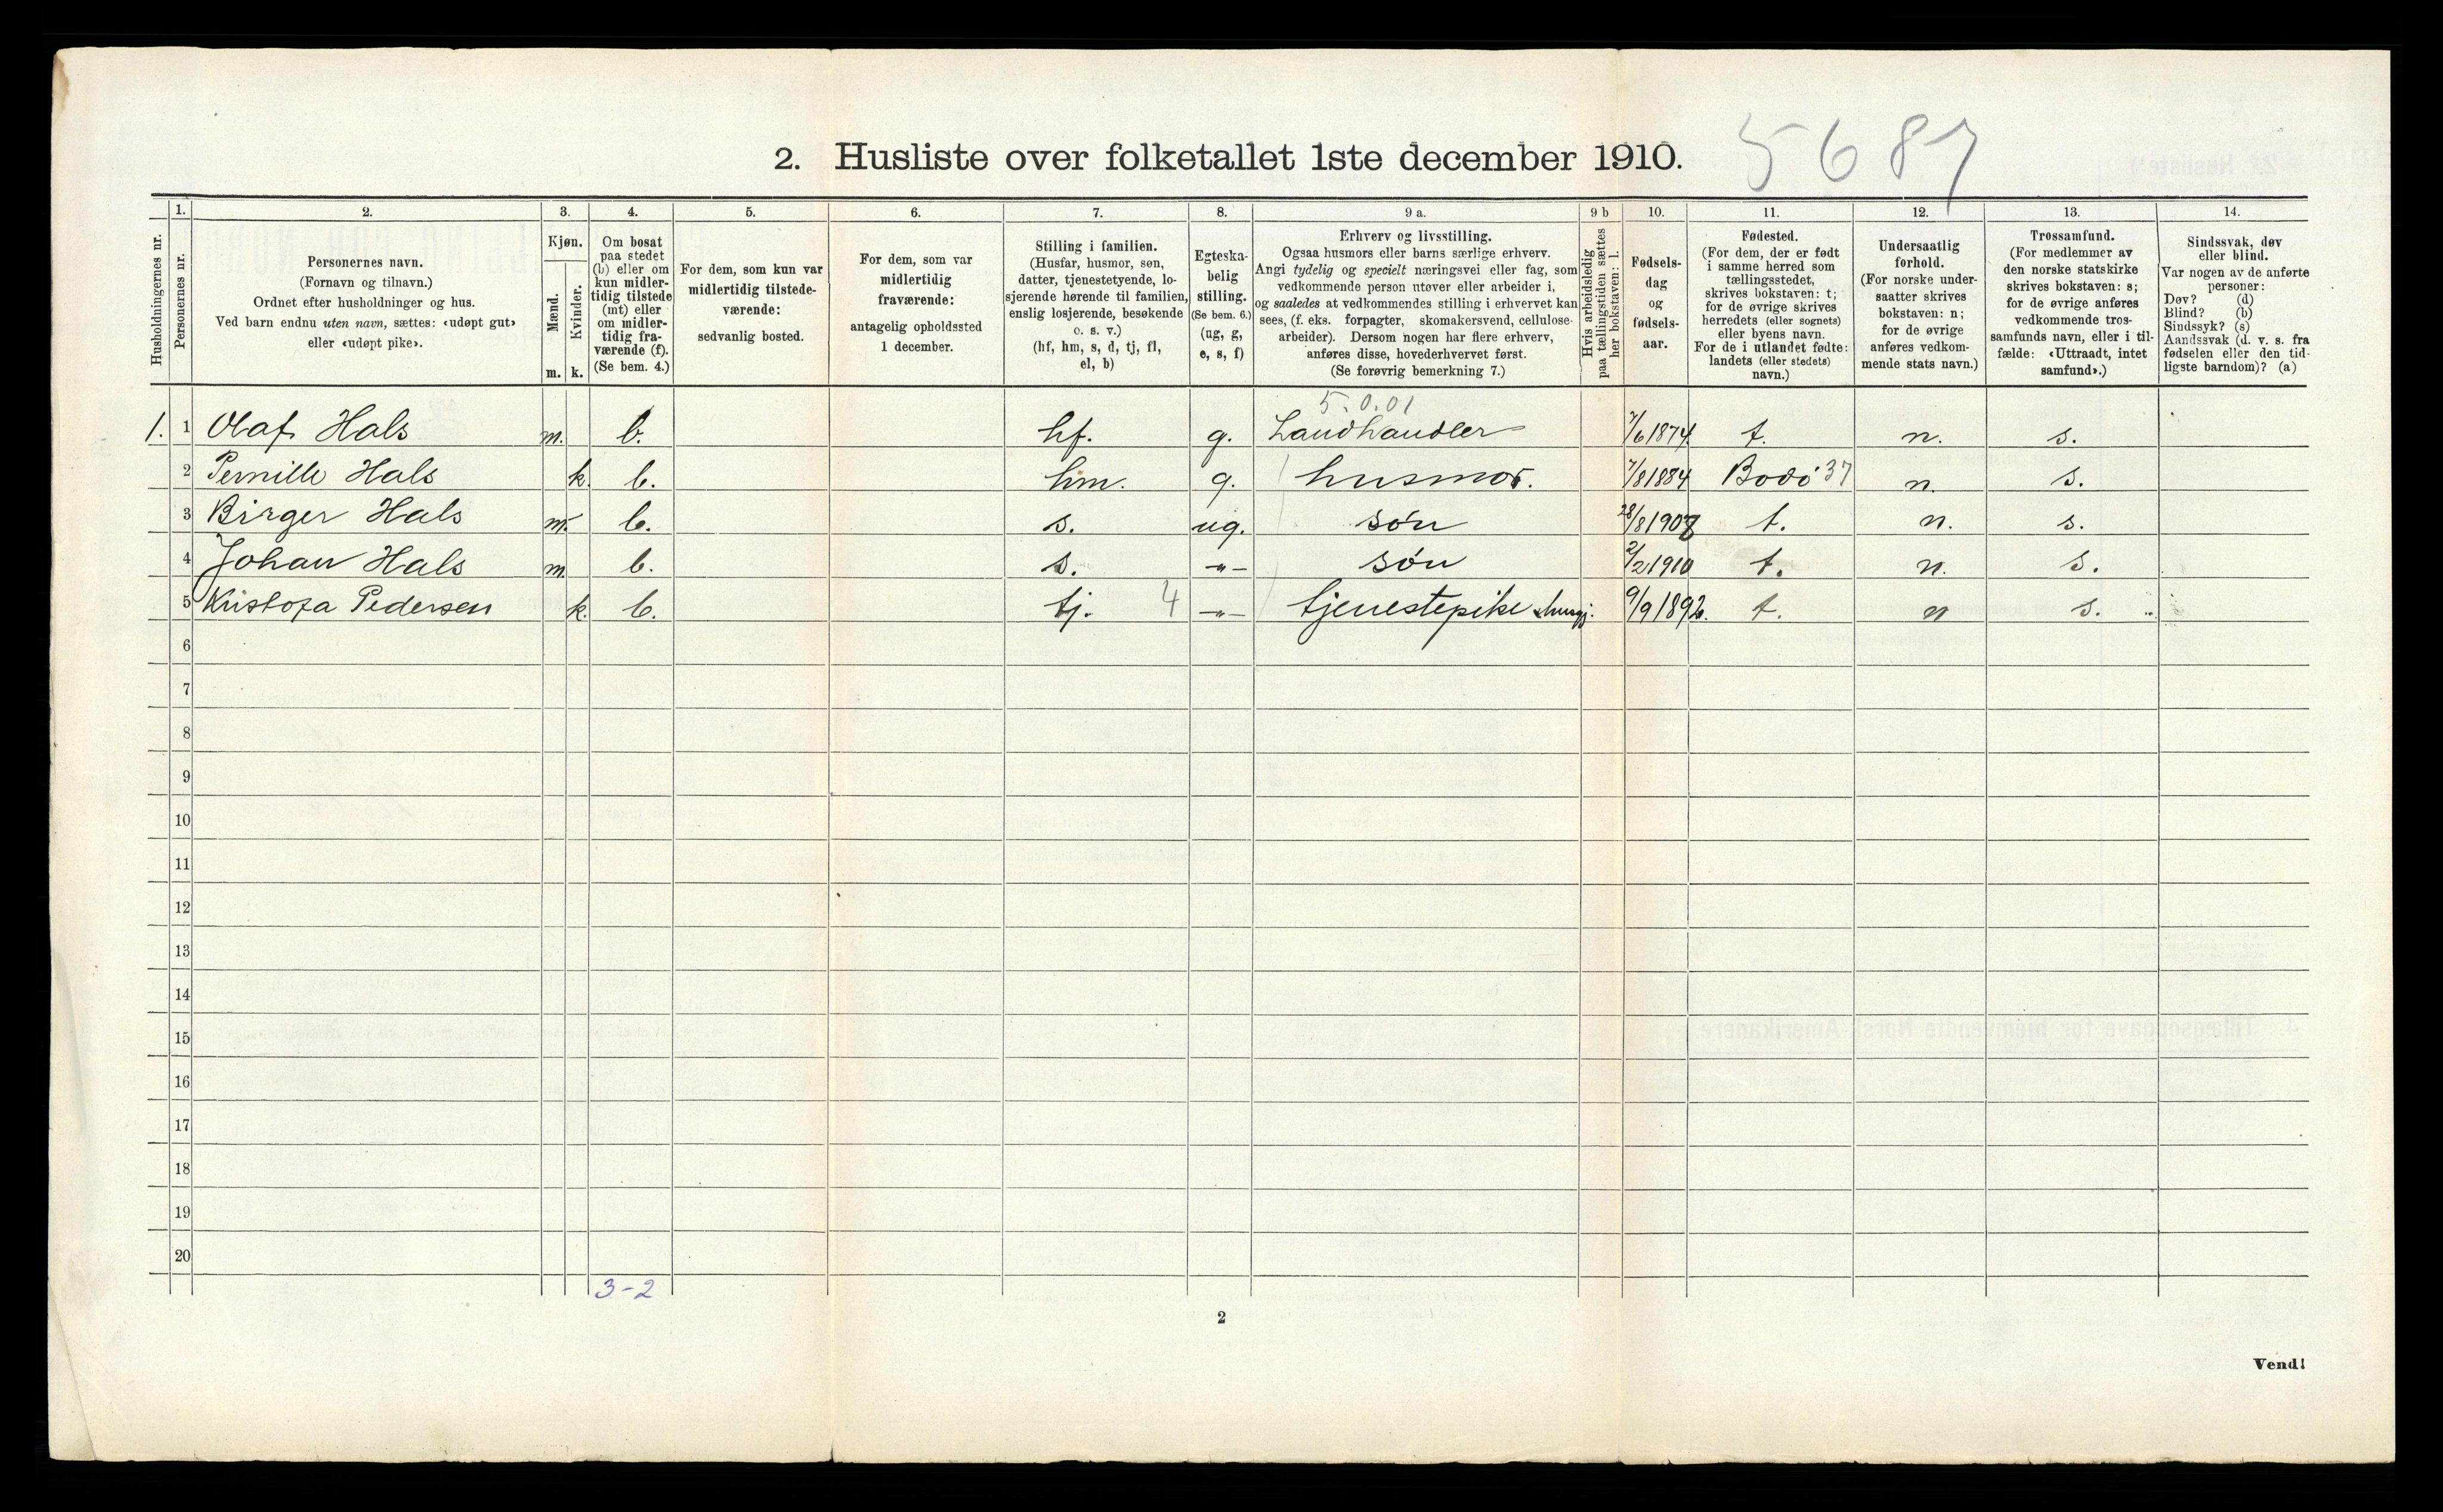 2. Husliste over folketallet 1ste december 1910.
5687
Husholdningernes nr.
1.
Personernes nr.
2.
Personernes navn.
(Fornavn og tilnavn.)
Ordnet efter husholdninger og hus.
Ved barn endnu uten navn, sættes: «udøpt gut»
eller «udøpt pike».
3.
Kjøn.
Mænd.
Kvinder.
m. k.
4.
Om bosat
paa stedet
(b) eller om
kun midler-
tidig tilstede
(mt) eller
om midler-
tidig fra-
værende (f).
(Se bem. 4.)
5.
For dem, som kun var
midlertidig tilstede-
værende:
sedvanlig bosted.
6.
For dem, som var
midlertidig
fraværende:
antagelig opholdssted
1 december.
7.
Stilling i familien.
(Husfar, husmor, søn,
datter, tjenestetyende, lo-
sjerende hørende til familien,
enslig losjerende, besøkende
o. s. v.)
(hf, hm, s, d, tj, fl,
el, b)
8.
Egteska-
belig
stilling.
(Se bem. 6.)
(ug, g,
e, s, f)
9 a.
Erhverv og livsstilling.
Ogsaa husmors eller barns særlige erhverv.
Angi tydelig og specielt næringsvei eller fag, som
vedkommende person utøver eller arbeider i,
og saaledes at vedkommendes stilling i erhvervet kan
sees, (f. eks. forpagter, skomakersvend, cellulose-
arbeider). Dersom nogen har flere erhverv,
anføres disse, hovederhvervet først.
(Se forøvrig bemerkning 7.)
9 b
Hvis arbeidsledig
paa tællingstiden sættes
her bokstaven: l.
10.
Fødsels-
dag
og
fødsels-
aar.
11.
Fødested.
(For dem, der er født
i samme herred som
tællingsstedet,
skrives bokstaven: t;
for de øvrige skrives
herredets (eller sognets)
eller byens navn.
For de i utlandet fødte:
landets (eller stedets)
navn.)
12.
Undersaatlig
forhold.
(For norske under-
saatter skrives
bokstaven: n;
for de øvrige
anføres vedkom-
mende stats navn.)
13.
Trossamfund.
(For medlemmer av
den norske statskirke
skrives bokstaven: s;
for de øvrige anføres
vedkommende tros-
samfunds navn, eller i til-
fælde: «Uttraadt, intet
samfund».)
14.
Sindssvak, døv
eller blind.
Var nogen av de anførte
personer:
Døv? (d)
Blind? (b)
Sindssyk? (s)
Aandssvak (d. v. s. fra
fødselen eller den tid-
ligste barndom)? (a)
5.0.01
1. 1 Olaf Hals m. b. hf. g. Landhandler 7/6 1874. t. n. s.
2 Pernille Hals k. b. hm. g. husmor. 7/8 1884 Bodó 37 n. s.
3 Birger Hals m. b. s. ug. són 28/8 1908 t. n. s.
4 Johan Hals m. b. s. -"- són 2/2 1910 t. n. s.
5 Kristofa Pedersen k. b. tj. 4 -"- tjenestepike husgj. 9/9 1892. t. n s.
6
7
8
9
10
11
12
13
14
15
16
17
18
19
20
3-2
2
Vend!